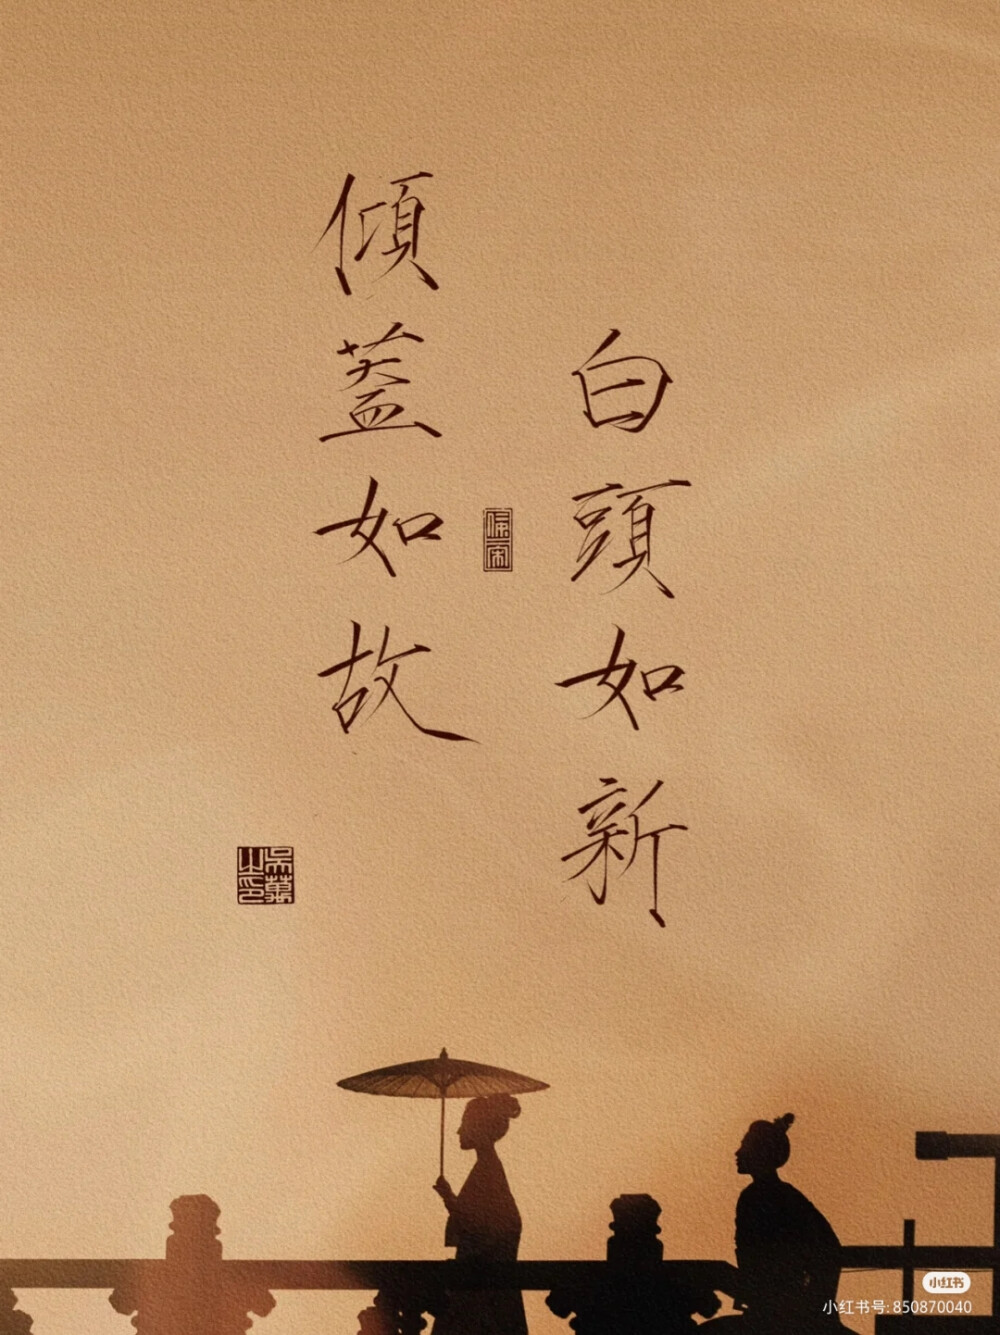 白頭如新
傾蓋如故
小红书
小红书号:850870040